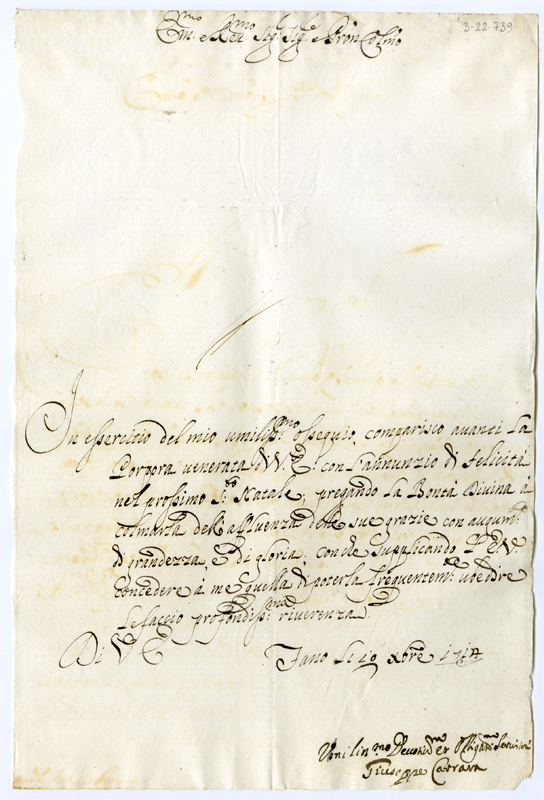 Em.mo e Rev.mo Sig.r Sig.r e Pron Col.mo
3-22-739
In essercitio del mio umiliss.mo ossequio, comparisco avanti La
Porpora venerata di V. E. con L'annunzio di felicità
nel prossimo S.to Natale, pregando La Bontà Divina à
colmarla dell'affluenza delle sue grazie con augum.to
di grandezza, e di gloria, con che supplicando V.
concedere à me quella di poterla frequentem.te
Le faccio profondiss.ma riverenza.
Di V E Fano Li 19 Xbre 1714
Umilin.mo Devotis.mo er Obligatis.mo Servitor
Giuseppe Carrara